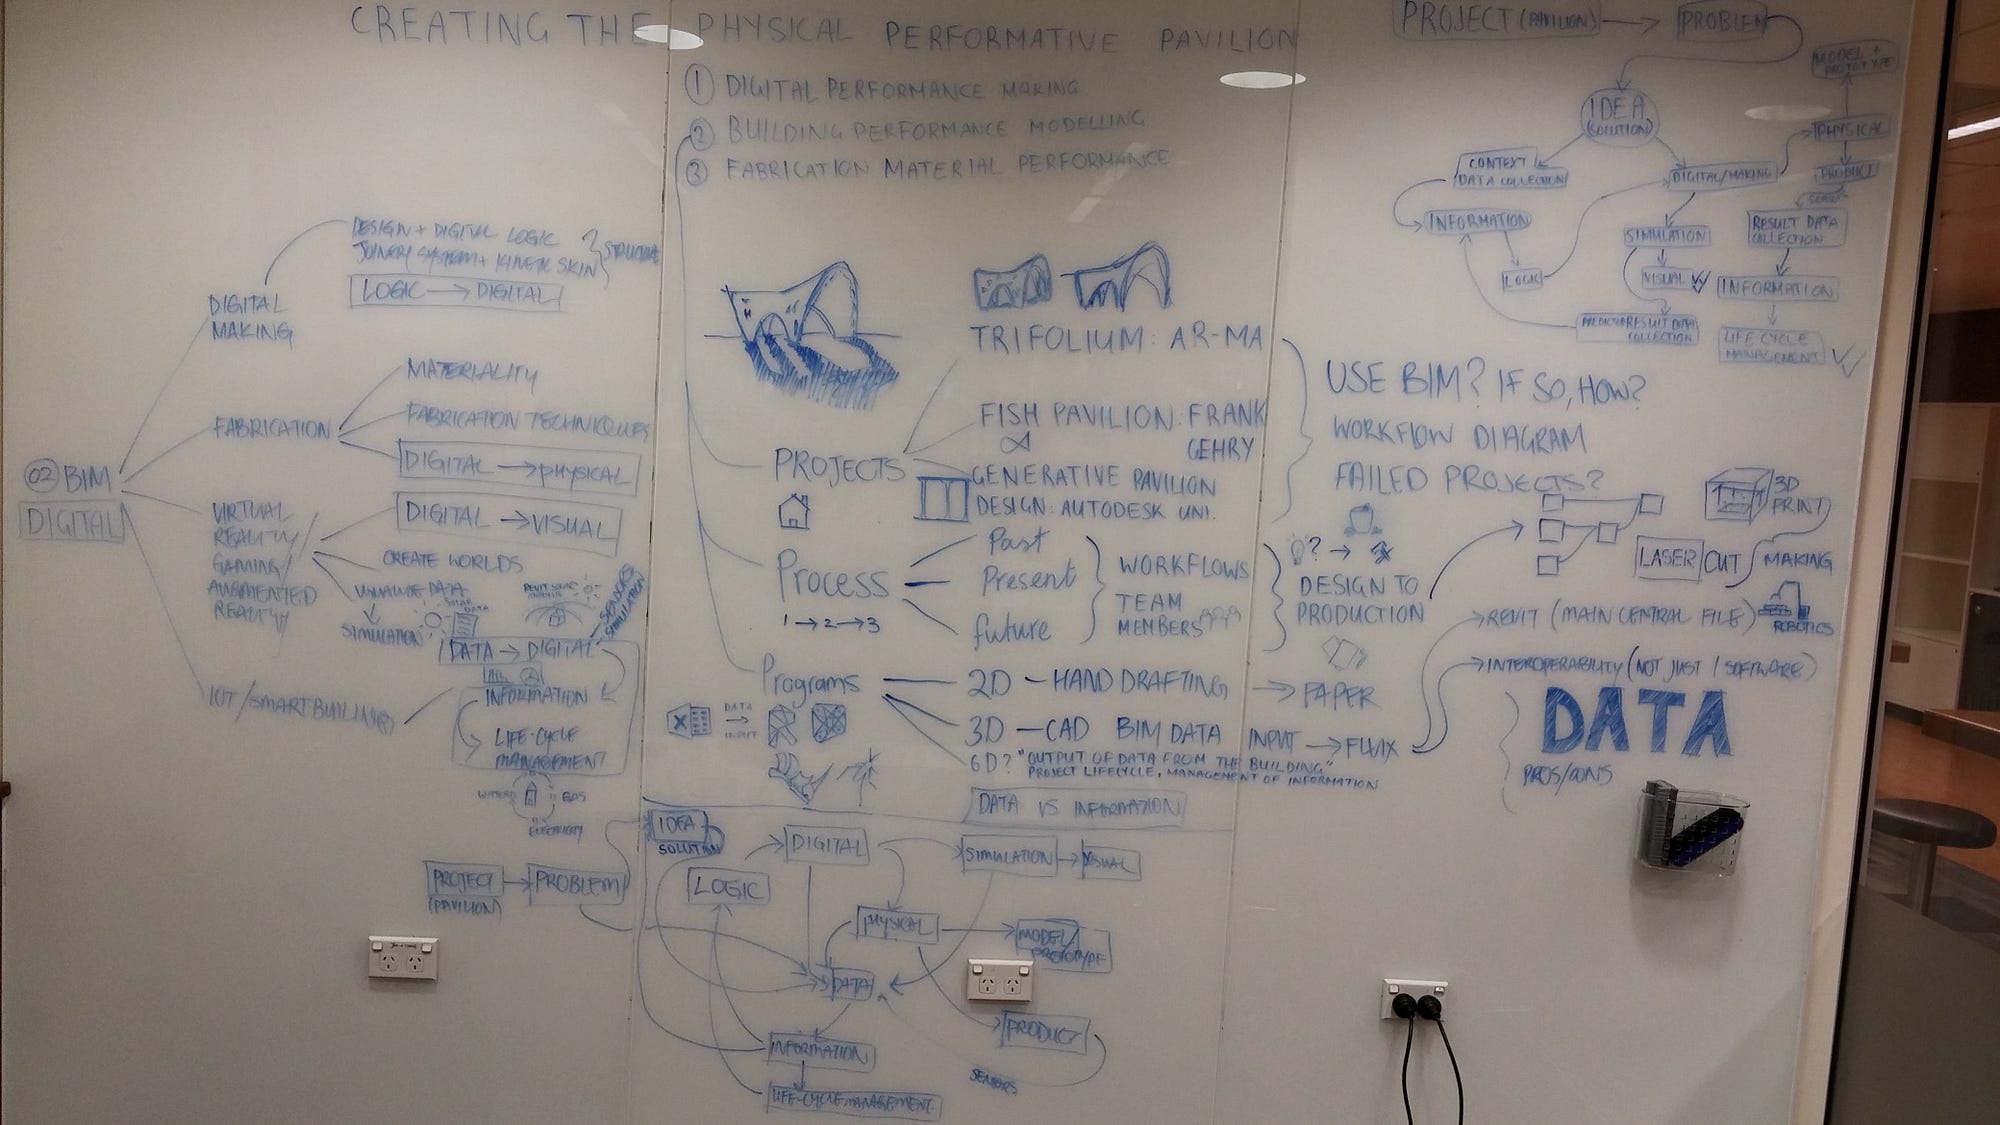 CREATING THE PHYSICAL PERFORMATIVE PAVILION
1 DIGITAL PERFORMANCE MAKING
2 BUILDING PERFORMANCE MODELLING
3 FABRICATION MATERIAL PERFORMANCE
02 BIM
DIGITAL
DIGITAL
MAKING
DESIGN + DIGITAL LOGIC
JOINERY SYSTEM + KINETIC SKIN
STRUCTURE
LOGIC → DIGITAL
FABRICATION
MATERIALITY
FABRICATION TECHNIQUES
DIGITAL → PHYSICAL
VIRTUAL
REALITY/
GAMING/
AUGMENTED
REALITY
DIGITAL → VISUAL
CREATE WORLDS
DATA
SIMULATION
SOLAR
DATA
SENSORS
SIMULATION
DATA → DIGITAL
INFORMATION
LIFE-CYCLE
MANAGEMENT
WATER
GAS
ELECTRICITY
IOT/SMART BUILDING(S)
PROJECTS
TRIFOLIUM: AR-MA
FISH PAVILION: FRANK
GEHRY
GENERATIVE PAVILION
DESIGN: AUTODESK UNI.
Process
1 → 2 → 3
Past
Present
future
WORKFLOWS
TEAM
MEMBERS
Programs
DATA
INPUT
2D - HAND DRAFTING → PAPER
3D - CAD BIM DATA INPUT → FLUX
6D? "OUTPUT OF DATA FROM THE BUILDING"
PROJECT LIFECYCLE, MANAGEMENT OF INFORMATION
DATA VS INFORMATION
USE BIM? IF SO, HOW?
WORKFLOW DIAGRAM
FAILED PROJECTS?
? →
DESIGN TO
PRODUCTION
3D
PRINT
LASER CUT
MAKING
REVIT (MAIN CENTRAL FILE)
ROBOTICS
INTEROPERABILITY (NOT JUST 1 SOFTWARE)
DATA
PROS/CONS
PROJECT (PAVILION) → PROBLEM
MODEL +
PROTOTYPE
IDEA
(SOLUTION)
PHYSICAL
CONTEXT
DATA COLLECTION
DIGITAL/MAKING
PRODUCT
SENSORS
INFORMATION
SIMULATION
RESULT DATA
COLLECTION
LOGIC
VISUAL
INFORMATION
RESULT DATA
COLLECTION
LIFE CYCLE
MANAGEMENT
PROJECT
(PAVILION)
PROBLEM
IDEA
SOLUTION
DIGITAL
SIMULATION → VISUAL
LOGIC
PHYSICAL
MODEL/
PROTOTYPE
DATA
PRODUCT
INFORMATION
SENSORS
LIFE-CYCLE MANAGEMENT